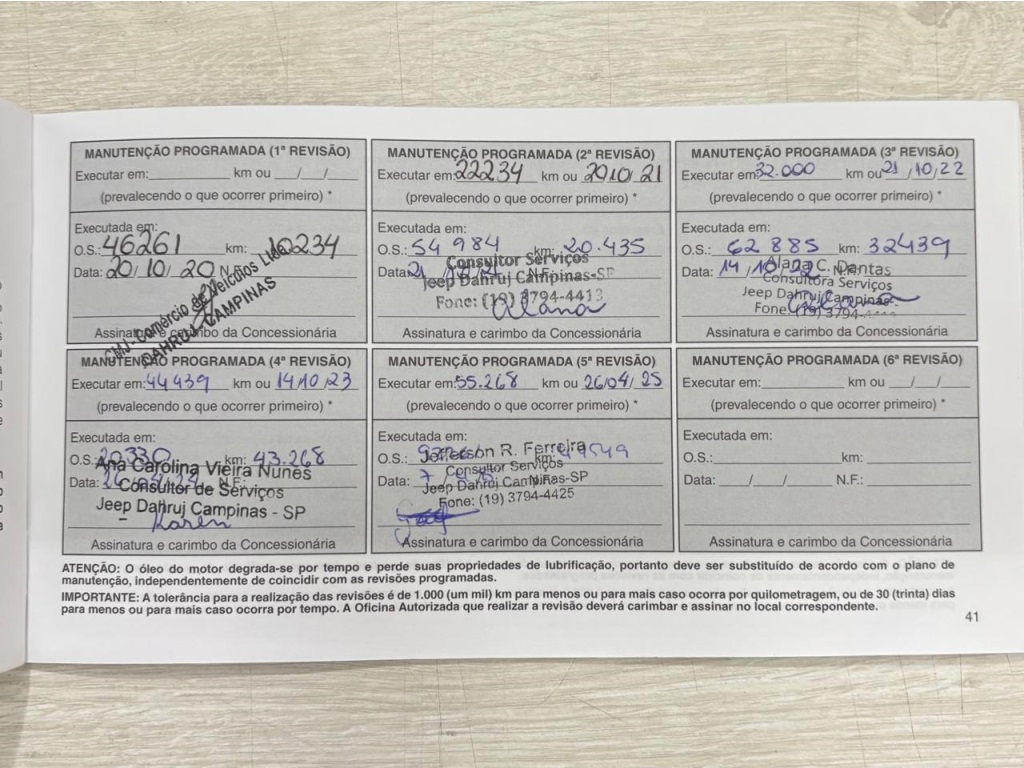 MANUTENÇÃO PROGRAMADA (1ª REVISÃO)
Executar em: km ou / /
(prevalecendo o que ocorrer primeiro) *
Executada em:
O.S.: 46261 km: 10234
Data: 20/ 10/ 20 N
CMJ - Comércio de Veículos Ltda
DAHRUJ CAMPINAS
Assinatura e carimbo da Concessionária
MANUTENÇÃO PROGRAMADA (2ª REVISÃO)
Executar em: 22234 km ou 20/10/21
(prevalecendo o que ocorrer primeiro) *
Executada em:
O.S.: 54 984 km: 20.435
Data: 21 N.F.
Consultor Serviços
Jeep Dahruj Campinas-SP
Fone: (19) 3794-4413
Alana
Assinatura e carimbo da Concessionária
MANUTENÇÃO PROGRAMADA (3ª REVISÃO)
Executar em: 32.000 km ou 21 /10/22
(prevalecendo o que ocorrer primeiro) *
Executada em:
O.S.: 62 885 km: 32439
Data: 14 /10/22 N.F.
Alana C. Dantas
Consultora Serviços
Jeep Dahruj Campinas
Fone (19) 3794-
Assinatura e carimbo da Concessionária
MANUTENÇÃO PROGRAMADA (4ª REVISÃO)
Executar em: 44439 km ou 14/10/23
(prevalecendo o que ocorrer primeiro) *
Executada em:
O.S.: 20330 km: 43.268
Data: 26/04/24 N.F.:
Ana Carolina Vieira Nunes
Consultor de Serviços
Jeep Dahruj Campinas - SP
Karen
Assinatura e carimbo da Concessionária
MANUTENÇÃO PROGRAMADA (5ª REVISÃO)
Executar em: 55.268 km ou 26/04/ 25
(prevalecendo o que ocorrer primeiro) *
Executada em:
O.S.: km: 49549
Data: 7 N.F.
Jefferson R. Ferreira
Consultor Serviços
Jeep Dahruj Campinas-SP
Fone: (19) 3794-4425
Assinatura e carimbo da Concessionária
MANUTENÇÃO PROGRAMADA (6ª REVISÃO)
Executar em: km ou / /
(prevalecendo o que ocorrer primeiro) *
Executada em:
O.S.: km:
Data: / / N.F.:
Assinatura e carimbo da Concessionária
ATENÇÃO: O óleo do motor degrada-se por tempo e perde suas propriedades de lubrificação, portanto deve ser substituído de acordo com o plano de
manutenção, independentemente de coincidir com as revisões programadas.
IMPORTANTE: A tolerância para a realização das revisões é de 1.000 (um mil) km para menos ou para mais caso ocorra por quilometragem, ou de 30 (trinta) dias
para menos ou para mais caso ocorra por tempo. A Oficina Autorizada que realizar a revisão deverá carimbar e assinar no local correspondente.
41